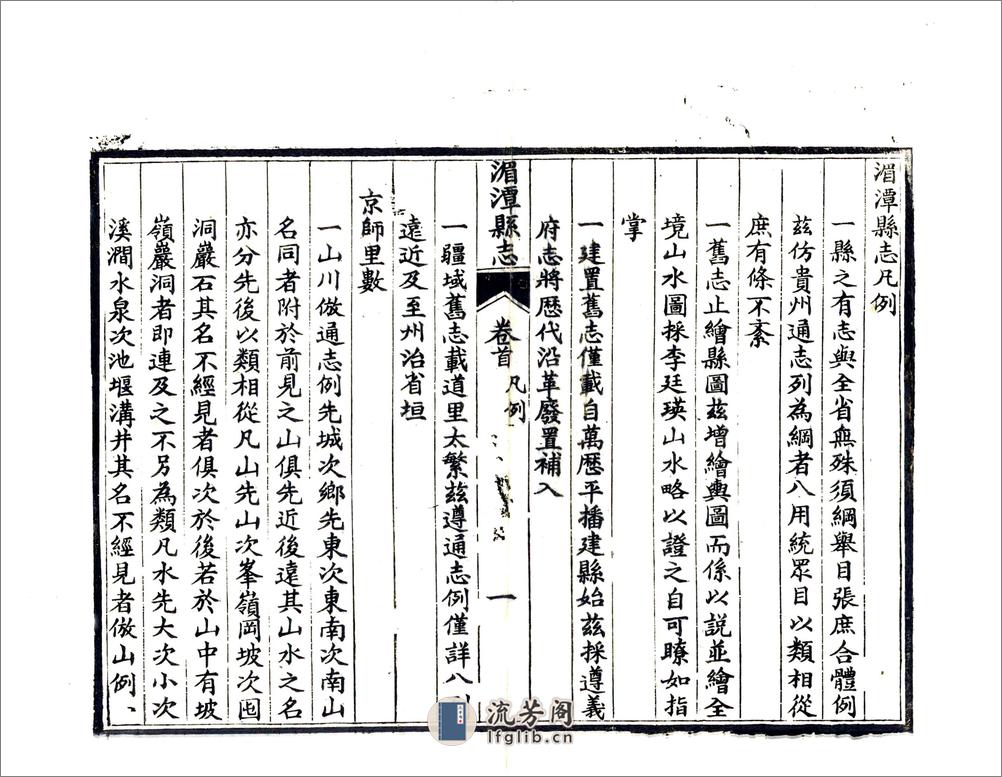 湄潭縣志凡例
一縣之有志與全省無殊須綱舉目張庶合體例
茲仿貴州通志列為綱者八用統眾目以類相從
庶有條不紊
一舊志止繪縣圖茲增繪輿圖而係以說並繪全
境山水圖採李廷瑛山水略以證之自可瞭如指
掌
一建置舊志僅載自萬歷平播建縣始茲採遵義
府志將歷代沿革廢置補入
湄潭縣志
卷首
凡例
一
一疆域舊志載道里太繁茲遵通志例僅詳八
遠近及至州治省垣
京師里數
一山川倣通志例先城次鄉先東次東南次南山
名同者附於前見之山俱先近後遠其山水之名
亦分先後以類相從凡山先山次峯嶺岡坡次囤
洞巖石其名不經見者俱次於後若於山中有坡
嶺巖洞者即連及之不另為類凡水先大次小次
溪澗水泉次池堰溝井其名不經見者倣山例、
流芳阁
lfglib.cn